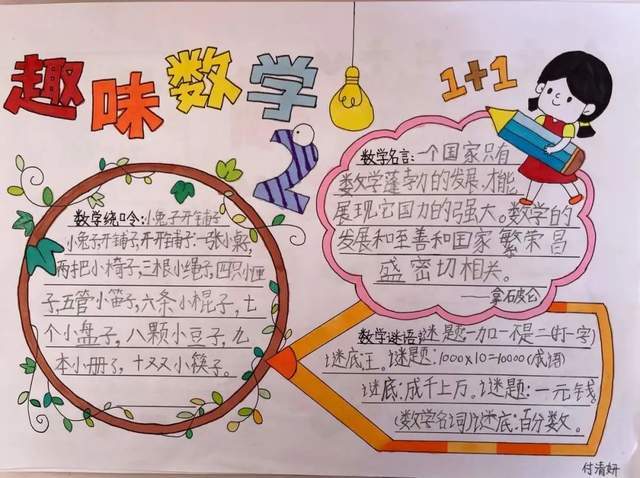 趣味数学
1+1
2
数学绕口令:小兔子开铺子
小兔子开铺子,开开铺子:一张小桌,
两把小椅子,三根小绳子,四只小匣
子,五管小笛子,六条小棍子,七
个小盘子,八颗小豆子,九
本小册子,十双小筷子。
数学名言:一个国家只有
数学蓬勃的发展,才能
展现它国力的强大。数学的
发展和至善和国家繁荣昌
盛密切相关。
——拿石破仑
数学谜语:谜题:一加一不是二(打一字)
谜底:王。谜题:1000x10=10000(成语)
谜底:成千上万。谜题:一元钱。
(数学名词)谜底:百分数。
付清妍